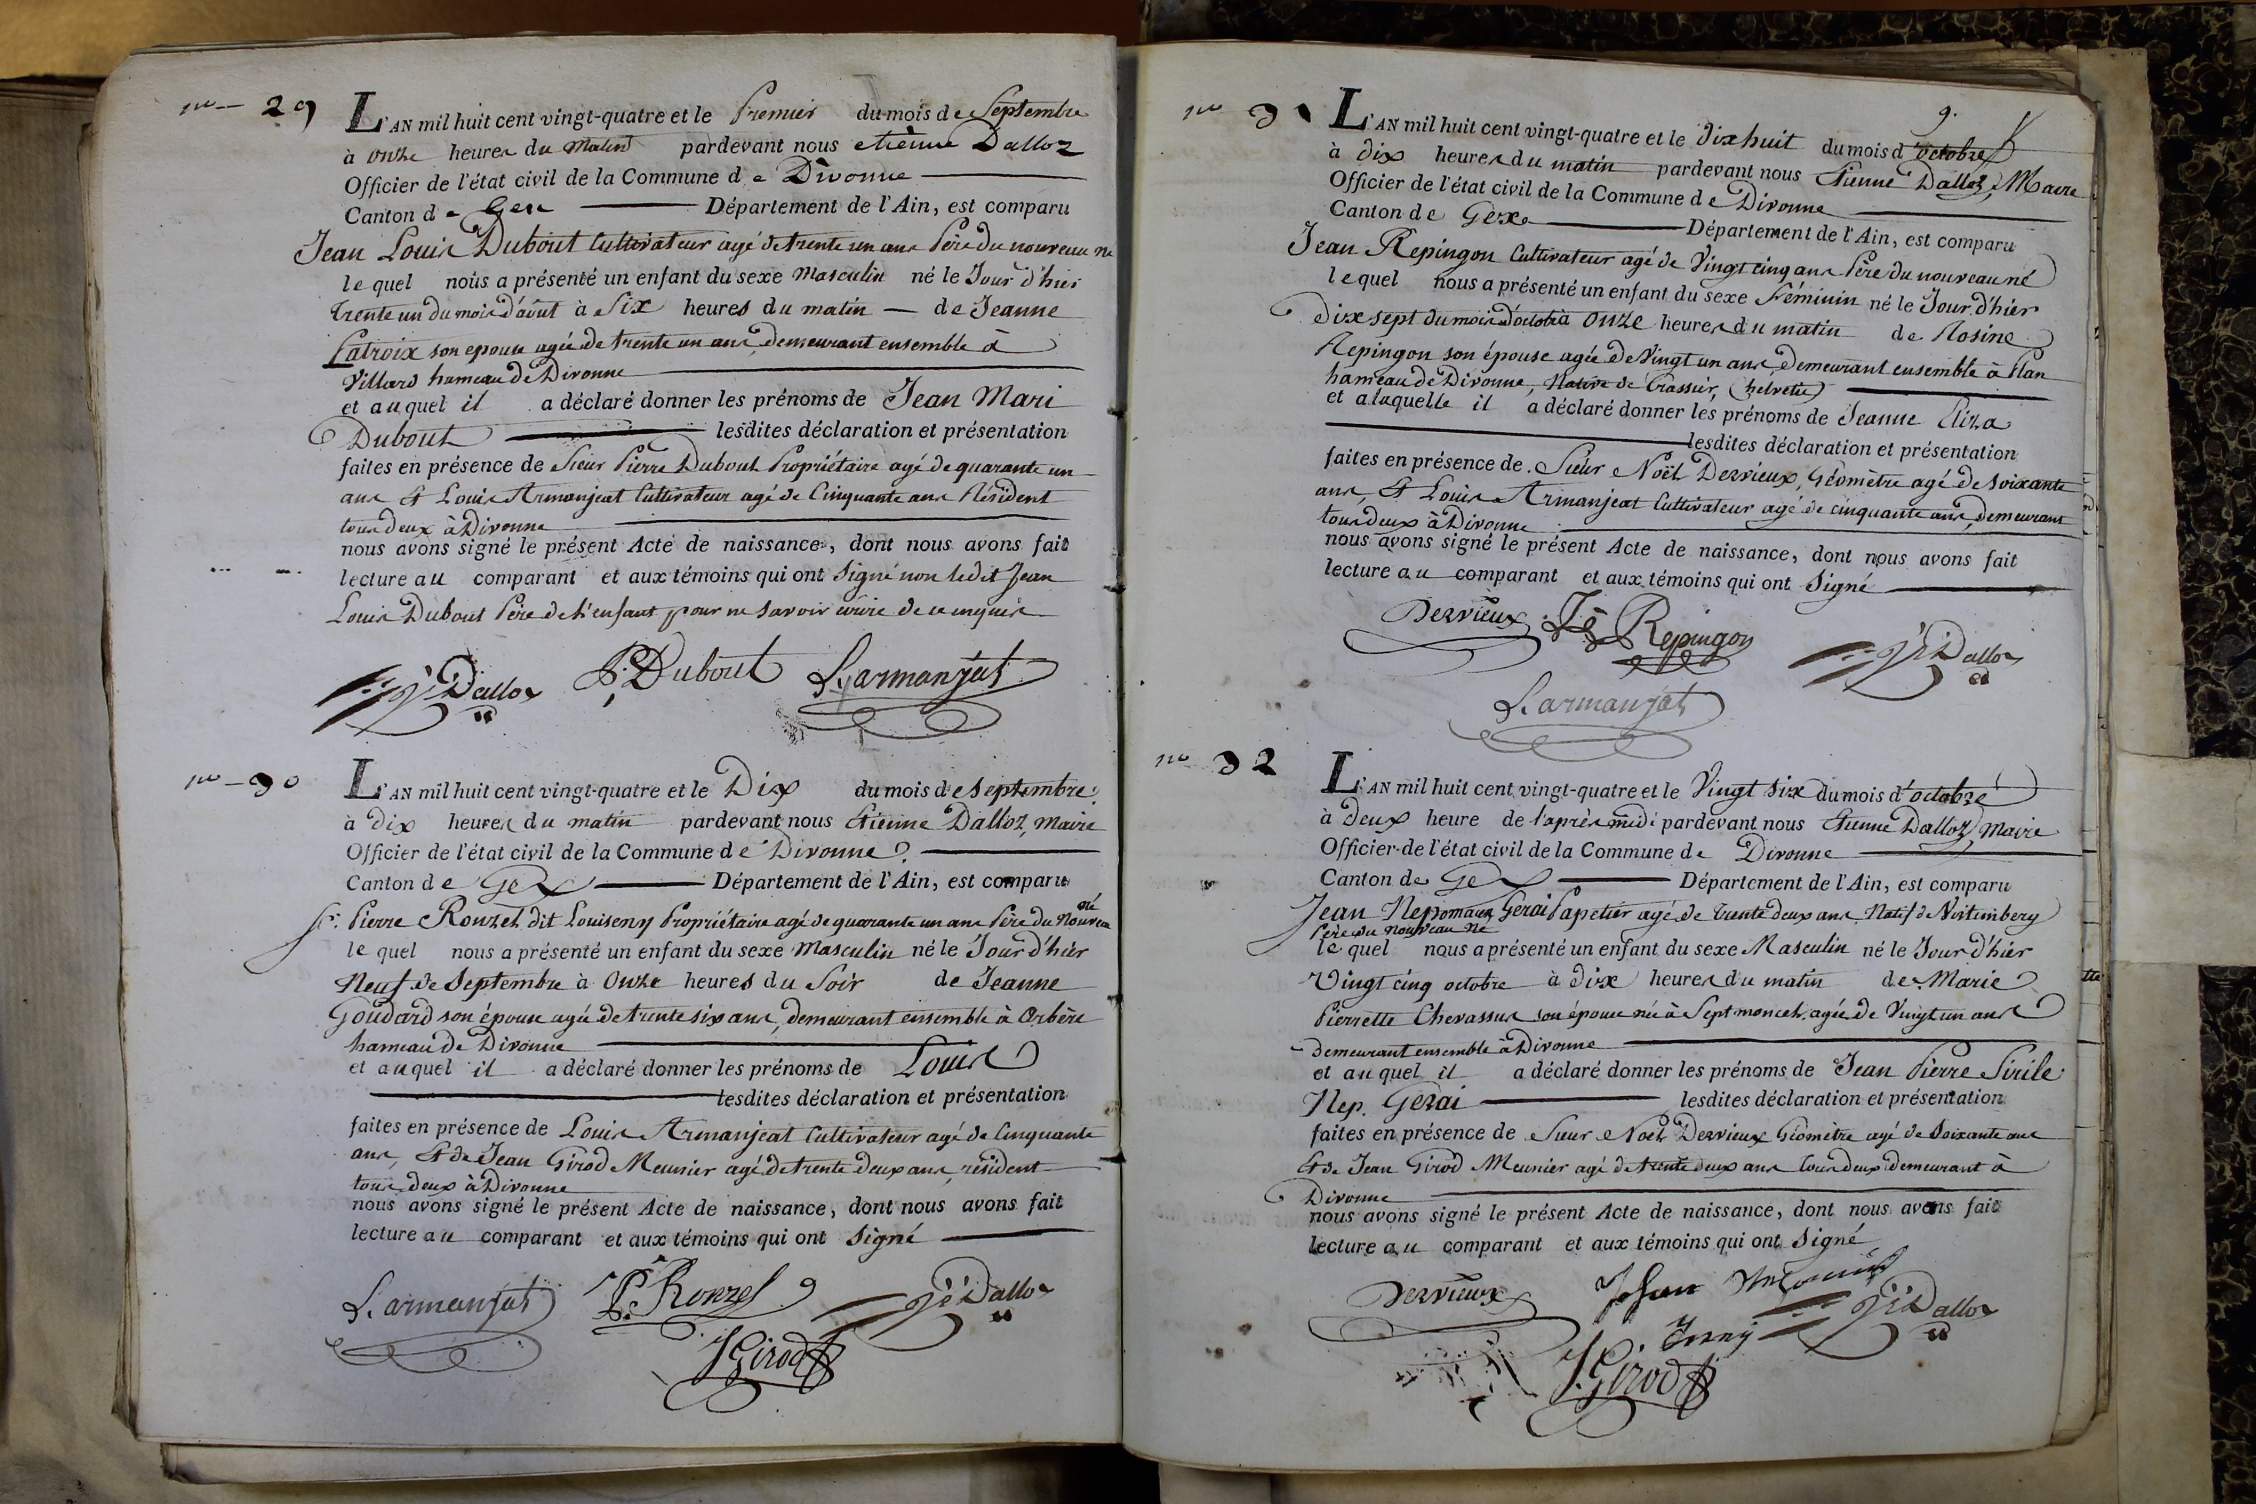 no 29
L'AN mil huit cent vingt-quatre et le Premier du mois de Septembre
à onze heures du Matin pardevant nous etienne Dalloz
Officier de l'état civil de la Commune de Divonne
Canton de Gex Département de l'Ain, est comparu
Jean Louis Dubout Cultivateur agé de trente un ans Père du nouveau né
lequel nous a présenté un enfant du sexe Masculin né le Jour d'hier
trente un du mois d'août à Six heures du matin de Jeanne
Latroix son epouse agée de trente un ans, demeurant ensemble à
Villard hameau de Divonne
et auquel il a déclaré donner les prénoms de Jean Mari
Dubout lesdites déclaration et présentation
faites en présence de Sieur Pierre Dubout Propriétaire agé de quarante un
ans Et Louis Armanjeat Cultivateur agé de Cinquante ans Résident
tous deux à Divonne
nous avons signé le présent Acte de naissance, dont nous avons fait
lecture au comparant et aux témoins qui ont Signé non ledit Jean
Louis Dubout Père de l'enfant pour ne savoir écrire de ce enquis
Dalloz P. Dubout L. armanjat
no 30
L'AN mil huit cent vingt-quatre et le Dix du mois de septembre
à dix heures du matin pardevant nous Etienne Dalloz, maire
Officier de l'état civil de la Commune de Divonne
Canton de Gex Département de l'Ain, est comparu
Sr. Pierre Ronzel dit Louiseny Propriétaire agé de quarante un ans Père du Nouveau né
lequel nous a présenté un enfant du sexe Masculin né le Jour d'hier
Neuf de Septembre à Onze heures du Soir de Jeanne
Goudard son épouse agée de trente six ans, demeurant ensemble à Arbère
hameau de Divonne
et auquel il a déclaré donner les prénoms de Louis
lesdites déclaration et présentation
faites en présence de Louis Armanjeat Cultivateur agé de Cinquante
ans, Et de Jean Girod Meunier agé de trente deux ans, résident
tous deux à Divonne
nous avons signé le présent Acte de naissance, dont nous avons fait
lecture au comparant et aux témoins qui ont Signé
L. armanjat P. Ronzel Dalloz
J Girod
9.
no 31
L'AN mil huit cent vingt-quatre et le dix huit du mois d'octobre
à dix heures du matin pardevant nous Etienne Dalloz, Maire
Officier de l'état civil de la Commune de Divonne
Canton de Gex Département de l'Ain, est comparu
Jean Repingon Cultivateur agé de Vingt cinq ans Père du nouveau né
lequel nous a présenté un enfant du sexe Féminin né le Jour d'hier
dix sept du mois d'octobre à Onze heures du matin de Rosine
Repingon son épouse agée de Vingt un ans, demeurant ensemble à Plan
hameau de Divonne, Native de Crassier, (helvetie)
et a laquelle il a déclaré donner les prénoms de Jeanne Eliza
lesdites déclaration et présentation
faites en présence de Sieur Noël Dervieux, Géomètre agé de soixante
ans, Et Louis Armanjeat Cultivateur agé de cinquante ans, demeurant
tous deux à Divonne
nous avons signé le présent Acte de naissance, dont nous avons fait
lecture au comparant et aux témoins qui ont Signé
Dervieux Repingon Dalloz
L. armanjat
no 32
L'AN mil huit cent vingt-quatre et le Vingt Six du mois d'octobre
à deux heure de l'après midi pardevant nous Etienne Dalloz, Maire
Officier de l'état civil de la Commune de Divonne
Canton de Gex Département de l'Ain, est comparu
Jean Nepomaux Gerai Papetier agé de trente deux ans Natif de Virtimberg
Père du nouveau né
lequel nous a présenté un enfant du sexe Masculin né le Jour d'hier
Vingt cinq octobre à dix heures du matin de Marie
Pierrette Chevassus son épouse née à Septmoncel, agée de Vingt un ans
demeurant ensemble à Divonne
et auquel il a déclaré donner les prénoms de Jean Pierre Sirile
Nep. Gerai lesdites déclaration et présentation
faites en présence de Sieur Noël Dervieux Géomètre agé de Soixante ans
Et de Jean Girod Meunier agé de trente deux ans tous deux demeurant à
Divonne
nous avons signé le présent Acte de naissance, dont nous avons fait
lecture au comparant et aux témoins qui ont Signé
Dervieux Johan Dalloz
J. Girod